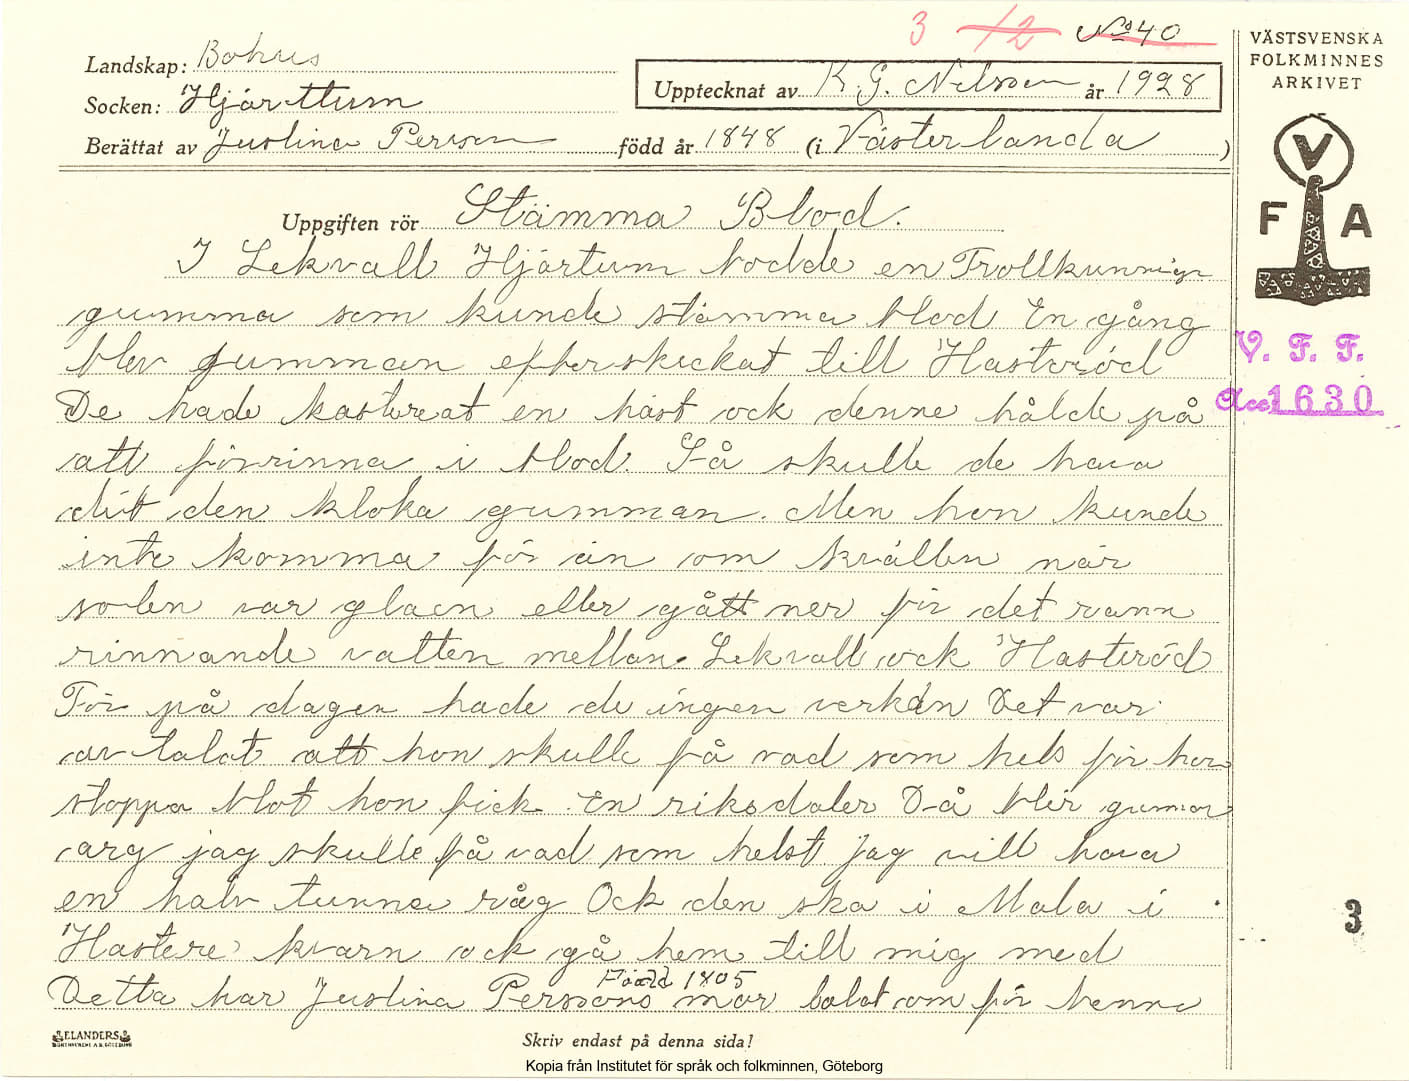 3 12 No 40
Landskap: Bohus
Socken: Hjärttum
Upptecknat av K. G. Nilsson år 1928
Berättat av Justina Person född år 1848 (i Västerlanda )
Uppgiften rör Stämma Blod.
I Lekvall Hjärtum bodde en Trollkunnig
gumma som kunde stämma blod En gång
blev gumman efterskickat till Hasteröd
De hade kastereat en häst ock denne hålde på
att förrinna i blod. Så skulle de hava
dit den kloka gumman. Men hon kunde
inte komma för än om kvällen när
solen var glaen eller gått ner för det rann
rinnande vatten mellan Lekvall ock Hasteröd
För på dagen hade de ingen verkan Det var
av talat att hon skulle få vad som hels för hon
stoppa blot hon fick En riksdaler Då blir gumman
arg jag skulle få vad som helst Jag vill hava
en halv tunna råg Ock den ska i Mala i
Hastere kvarn ock gå hem till mig med
Föödd 1805
Detta har Justina Perssons mor talat om för henne
ELANDERS
Skriv endast på denna sida!
Kopia från Institutet för språk och folkminnen, Göteborg
VÄSTSVENSKA
FOLKMINNES
ARKIVET
V
F A
V. F. F.
Acc 1630
3